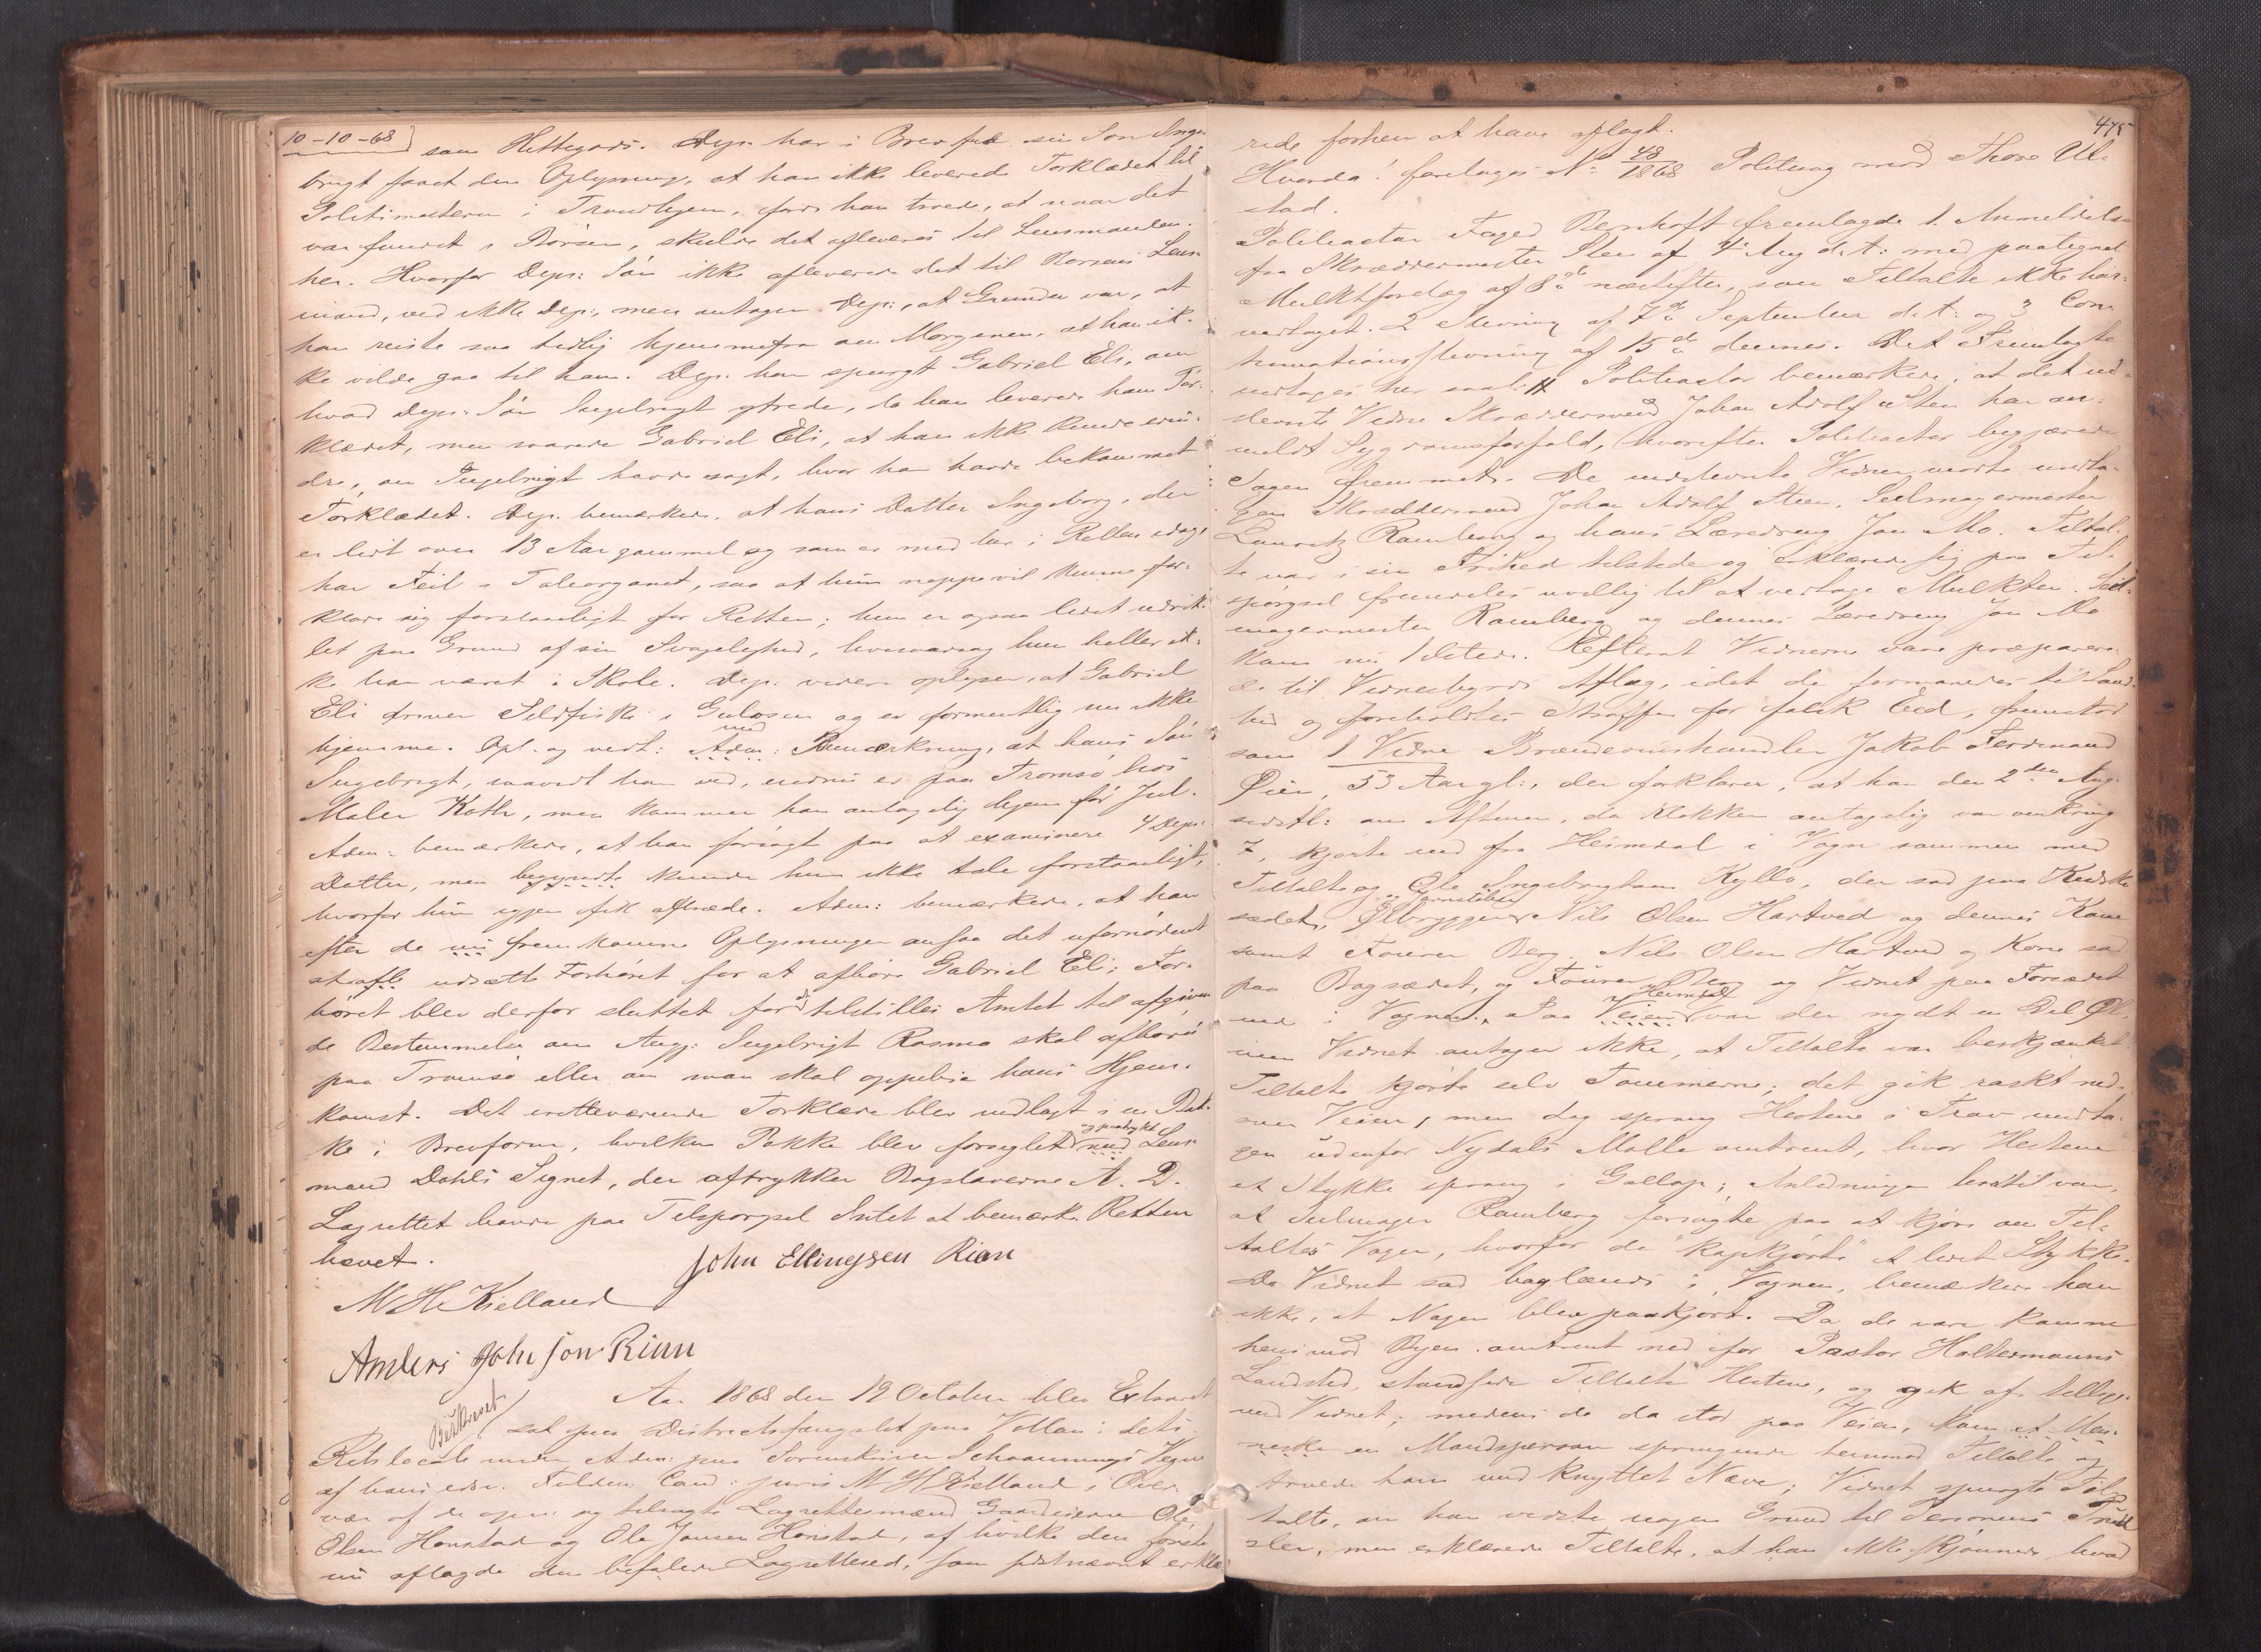 10-10-68
som Hittegods. Dep. har i Brev fra sin Søn Inge-
brigt faaet den Oplysning, at han ikke leverede Tørklædet til
Politimesteren i Trondhjem, fordi han troede, at naar det
var fundet i Børsen, skulde det afleveres til Lensmanden
her. Hvorfor Dep: Søn ikke afleverede det til Børsens Lens-
mand, ved ikke Dep:, men antager Dep:, at Grunden var, at
han reiste saa tidlig hjemmefra om Morgenen, at han ik-
ke vilde gaa til ham. Dep. har spurgt Gabriel Eli, om
hvad Dep: Søn Ingebrigt ytrede, da han leverede ham Tør-
klædet, men svarede Gabriel Eli, at han ikke kunde erin-
dre, om Ingebrigt havde sagt, hvor han havde bekommet
Tørklædet. Dep. bemærkede, at hans Datter Ingeborg, der
er lidt over 13 Aar gammel og som er med her i Retten idag,
har Feil i Taleorganet, saa at hun neppe vil kunne for-
klare sig forstaaeligt for Retten; hun er ogsaa lidet udvik-
let paa Grund af sin Svagelighed, hvorhun heller ik-
ke har været i Skole. Dep. videre oplyser, at Gabriel
Eli driver Sildfiske i Gulosen og er formentlig nu ikke
hjemme. Opl. og vedt: med Adm: Bemærkning, at hans Søn
Ingebrigt, saavidt han ved, endnu er paa Tromsø hos
Maler Koth, men kommer han antagelig hjem før Jul.
Adm: bemærkede, at han forsøgt paa at examinere 4 Dep:
Datter, men begyndte kunde hun ikke tale forstaaeligt,
hvorfor hun igjen fik aftræde. Adm: bemærkede, at han
efter de nu fremkomne Oplysninger ansaa det ufornødent
at udsætte Forhøret for at afhøre Gabriel Eli; For-
høret blev derfor sluttet for at tilstilles Amtet til afgiven-
de Bestemmelse om Ang: Ingebrigt Rosmo skal afhøres
paa Tromsø eller om man skal oppebie hans Hjem-
komst. Det iretteværende Tørklæde blev indlagt i en Pak-
ke i Brevform, hvilken Pakke blev forseglet og paatrykt med Lens-
mand Dahls Signet, der aftrykker Bogstaverne A. D.
Lagrettet havde paa Tilspørgsel Intet at bemærke Retten
hævet.
John Ellingsen Rian
M H Kielland
Anders Johnson Rian
Beskrevet
Aar 1868 den 19 October blev Extraret
sat paa Districtsfængslet paa Vollan i dets
Retslocale under Adm: paa Sorenskriver Schaannings Vegne
af hans edsv. Fuldm: Cand: juris M H Kielland i Over-
vær af de opn: og tilsagte Lagrettesmænd Gaardeierne Ole
Olsen Honstad og Ole Jonsen Honstad, af hvilke den første
nu aflagde den befalede Lagretteed, som sidstnævnt erklæ-
475
rede forhen at have aflagt.
Hvorda! foretoges No 48/1868 Politisag mod Thore Ul-
stad.
Politiactor Foged Bernhoft fremlagde 1. Anmeldelse
fra Skræddermester Steen af 4 Aug d. A: med paategnet
Mulktforelæg af 8de næstefter, som Tiltalte ikke har
vedtaget. 2 Stevning af 7de September d. A: og 3 Con-
tinuationsstevning af 15de dennes. Det Fremlagte
indtages her saal: # Politiactor bemærkede, at det ind-
stevnte Vidne Skræddersvend Johan Adolf Steen har an-
meldt Sygdomsforfald, hvorefter Politiactor begjærede
Sagen fremmet. De indstevnte Vidner mødte undta-
gen Skræddersvend Johan Adolf Steen, Seilmagermester
Lauritz Ramberg og hans Læredreng Jon Mo. Tiltal-
te var i sin Frihed tilstede og erklærede sig paa Til-
spørgsel fremdeles uvillig til at vedtage Mulkten. Seil-
magermester Ramberg og dennes Læredreng Jon Mo
kom nu tilstede. Efterat Vidnerne vare præparere-
de til Vidnesbyrds Aflæg, idet de formanedes til Sand-
hed og foreholdtes Straffen for falsk Eed, fremstod
som 1 Vidne Brændevinshandler Jakob Ferdinand
Øien, 53 Aar gl:, der forklarer, at han den 2den Aug.
sidstl: om Aftenen, da Klokken antagelig var omkring
7, kjørte ned fra Heimdal i Vogn sammen med
Tiltalte og Ole Ingebrigtsen Kyllo, der sad paa Kudske-
sædet, Ølbrygger Nils Olsen Hartved og dennes Kone
samt Fourer Berg. Nils Olsen Hartved og Kone sad
paa Bagsædet, og Fourer Berg og Vidnet paa Forsædet
inde i Vognen. Paa Veien Heimdal var der nydt en Del Øl,
men Vidnet antager ikke, at Tiltalte var beskjænket.
Tiltalte kjørte selv Tømmerne; det gik raskt ned-
over Veien, men dog sprang Hestene i Trav undta-
gen udenfor Nydals Mølle omtrent, hvor Hestene
et Stykke sprang i Gallop; Anledningen hertil var,
at Seilmager Ramberg forsøgte paa at kjøre om Til-
taltes Vogn, hvorfor de "kapkjørte" et lidet Stykke.
Da Vidnet sad baglænds i Vognen, bemærkede han
ikke, at Nogen blev paakjørt. Da de vare komne
hen imod Byen omtrent ned for Pastor Holtermanns
Landsted, standsede Tiltalte Hestene, og gik af tillige-
med Vidnet; medens de da stod paa Veien, kom et Men-
neske en Mandsperson springende henimod Tiltalte og
truede ham med knyttet Næve; Vidnet spurgte Til-
talte, om han vidste nogen Grund til Personens Trud-
sler, men erklærede Tiltalte, at han ikke skjønnede hvad